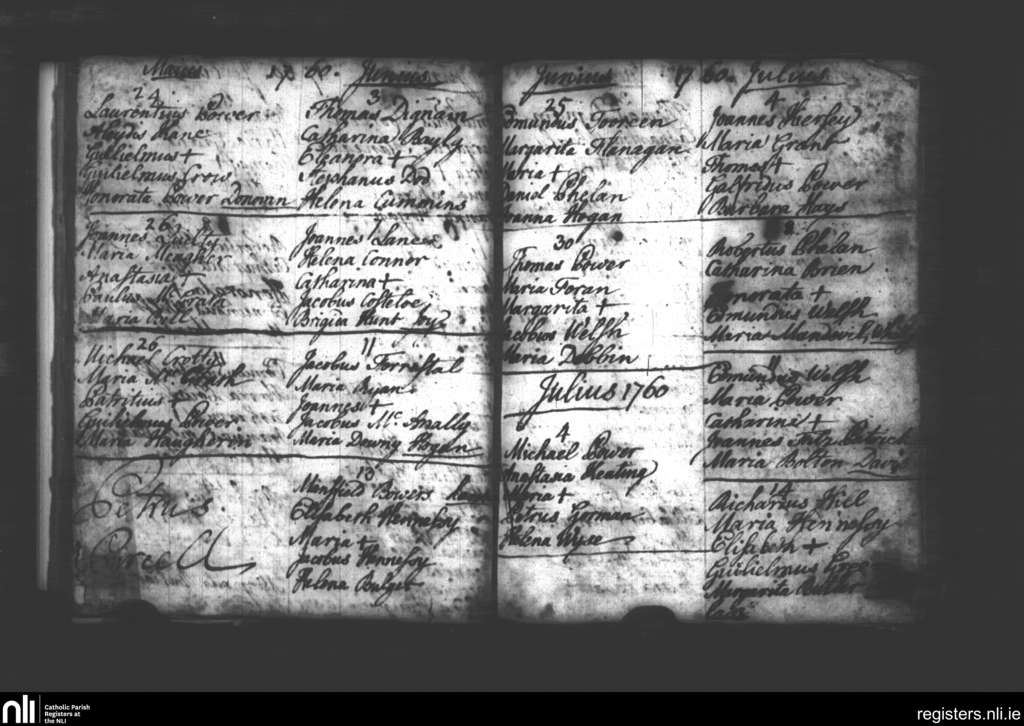 Maius 1760. Junius
24
Laurentius Power
Kane
Gulielmus +
Guilielmus Crow
Honorata Power Donnan
26
Joannes Quilty
Maria Meagher
Anastasia +
Paulus
Maria
26
Michael Crotty
Maria
Patritius +
Guilielmus Power
Maria Haughdrin
Petrus
Purcell
3
Thomas Dignam
Catharina Bayly
Eleanora +
Helena Cummins
7
Joannes Lance
Helena Connor
Catharina +
Jacobus Costeloe
Brigita Hunt
11
Jacobus Forrestal
Maria Ryan
Joannes +
Jacobus Mc. Anally
Maria Downy Hogan
13
Minfield Bowers
Elisabeth Hennessy
Maria +
Jacobus Hennessy
Helena Bulger
Junius 1760. Julius
25
Edmundus Torreen
Margarita Flanagan
Maria +
Daniel Phelan
Joanna Hogan
30
Thomas Power
Maria Foran
Margarita +
Jacobus Welsh
Maria Dobbin
Julius 1760
4
Michael Power
Anastasia Keating
Maria +
Petrus Gorman
Helena Wyse
4
Joannes Hersey
Maria Grant
Thomas +
Galfridus Power
Barbara Hays
8
Robertus Phelan
Catharina Brien
Honorata +
Edmundus Welsh
Maria Mandevil
11
Edmundus Walsh
Maria Power
Catharine +
Joannes Fitz Patrick
Maria Bolton
14
Richardus Kiel
Maria Hennessy
Elisabeth +
Guilielmus
Margarita Butler
nli
Catholic Parish
Registers at
the NLI
registers.nli.ie